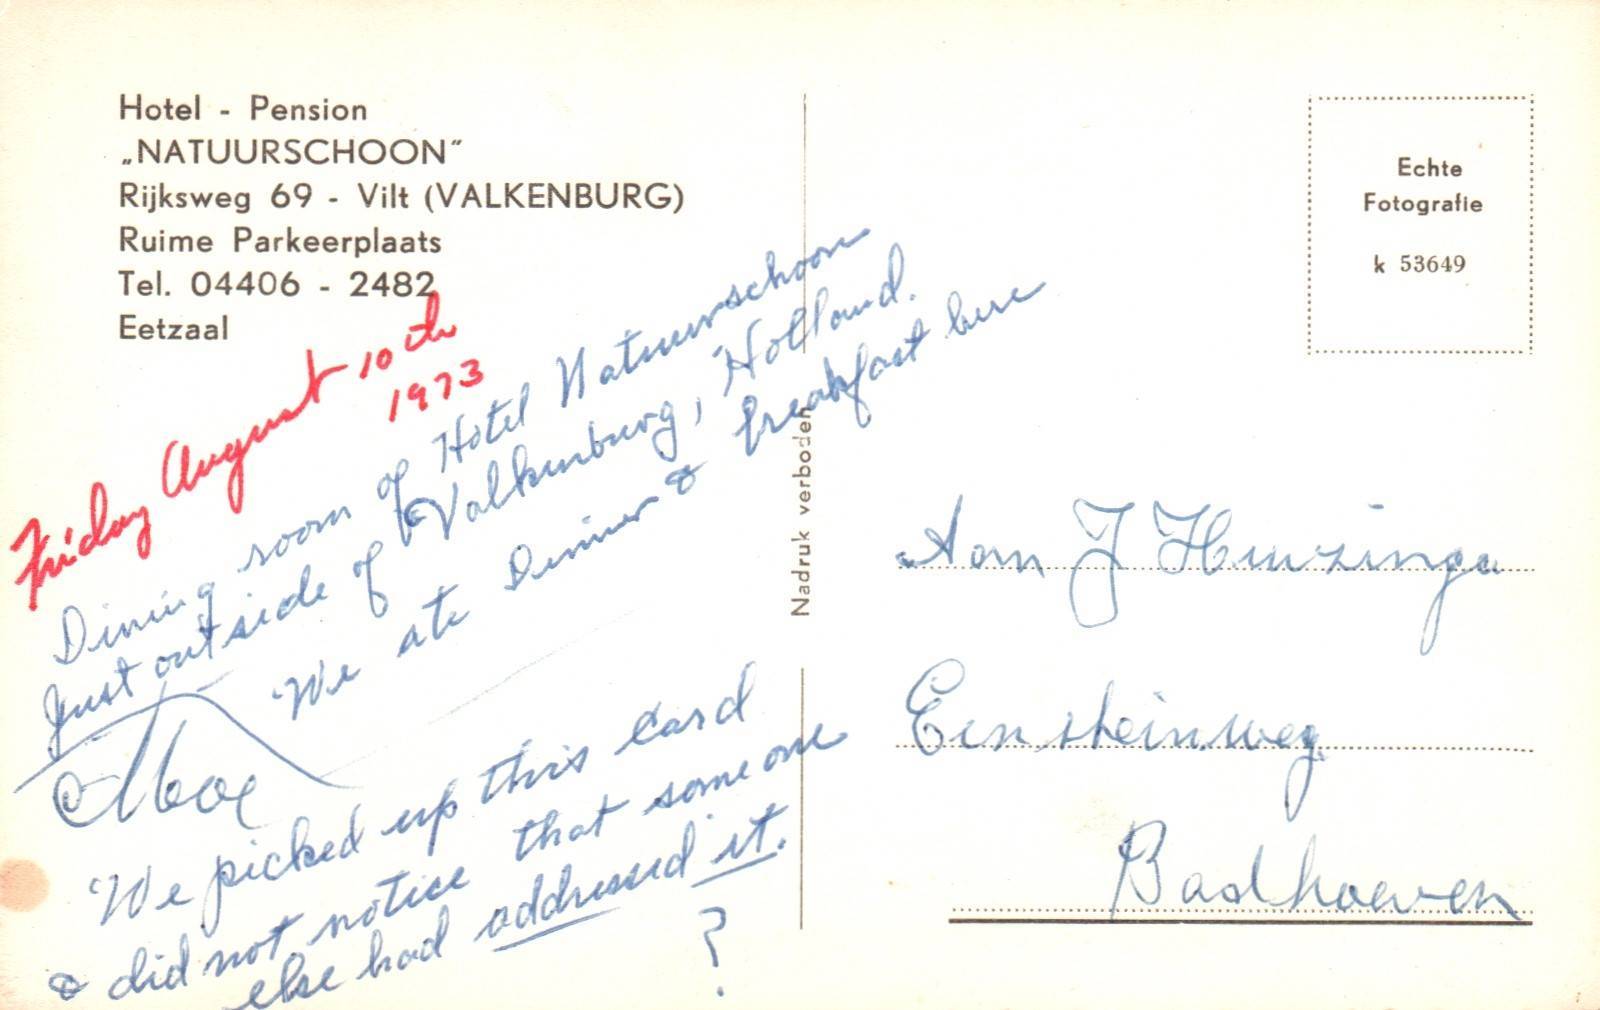 Hotel - Pension
„NATUURSCHOON”
Rijksweg 69 - Vilt (VALKENBURG)
Ruime Parkeerplaats
Tel. 04406 - 2482
Eetzaal
Friday August 10th
1973
Dining room of Hotel Natuurschoon
just outside of Valkenburg, Holland.
We ate Dinner & breakfast here
We picked up this card
& did not notice that some one
else had addressed it.
?
Nadruk verboden
Echte
Fotografie
k 53649
Aan J Huizinga
Einsteinweg
Badhoeven